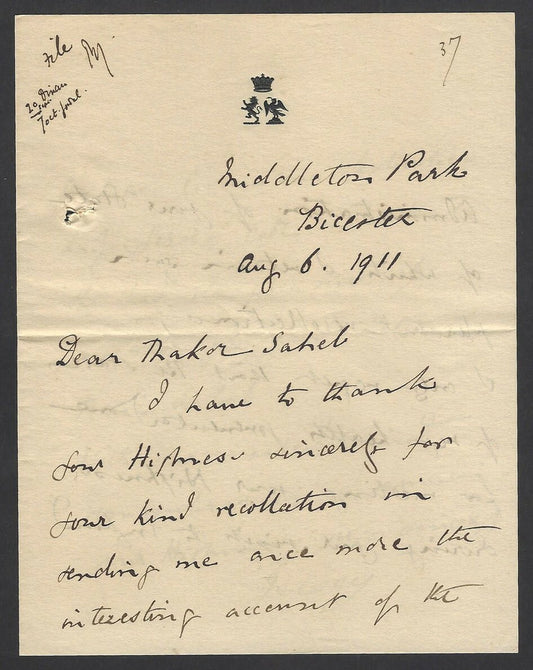 File
37
20
Middleton Park
Bicester
Aug 6. 1911
Dear Thakor Saheb
I have to thank
your Highness sincerely for
your kind recollection in
sending me once more the
interesting account of the